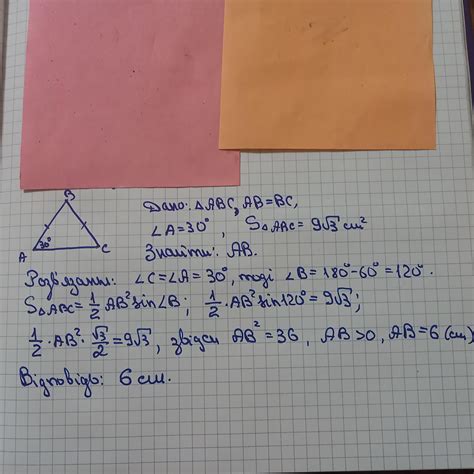 B
Дано: △ABC, AB=BC,
A 30° C
∠A=30°, S△ABC=9√3 см²
Знайти: AB.
Розв'язання: ∠C=∠A=30°, тоді ∠B=180°-60°=120°.
S△ABC=1/2 AB² sin∠B; 1/2·AB² sin120°=9√3;
1/2·AB²·√3/2=9√3, звідси AB²=36, AB>0, AB=6 (см)
Відповідь: 6 см.